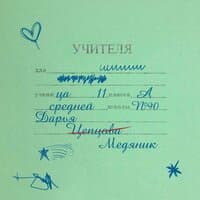 УЧИТЕЛЯ
для
учени ца 11 класса А
средней школы №90
Дарья Цепцова
Медяник